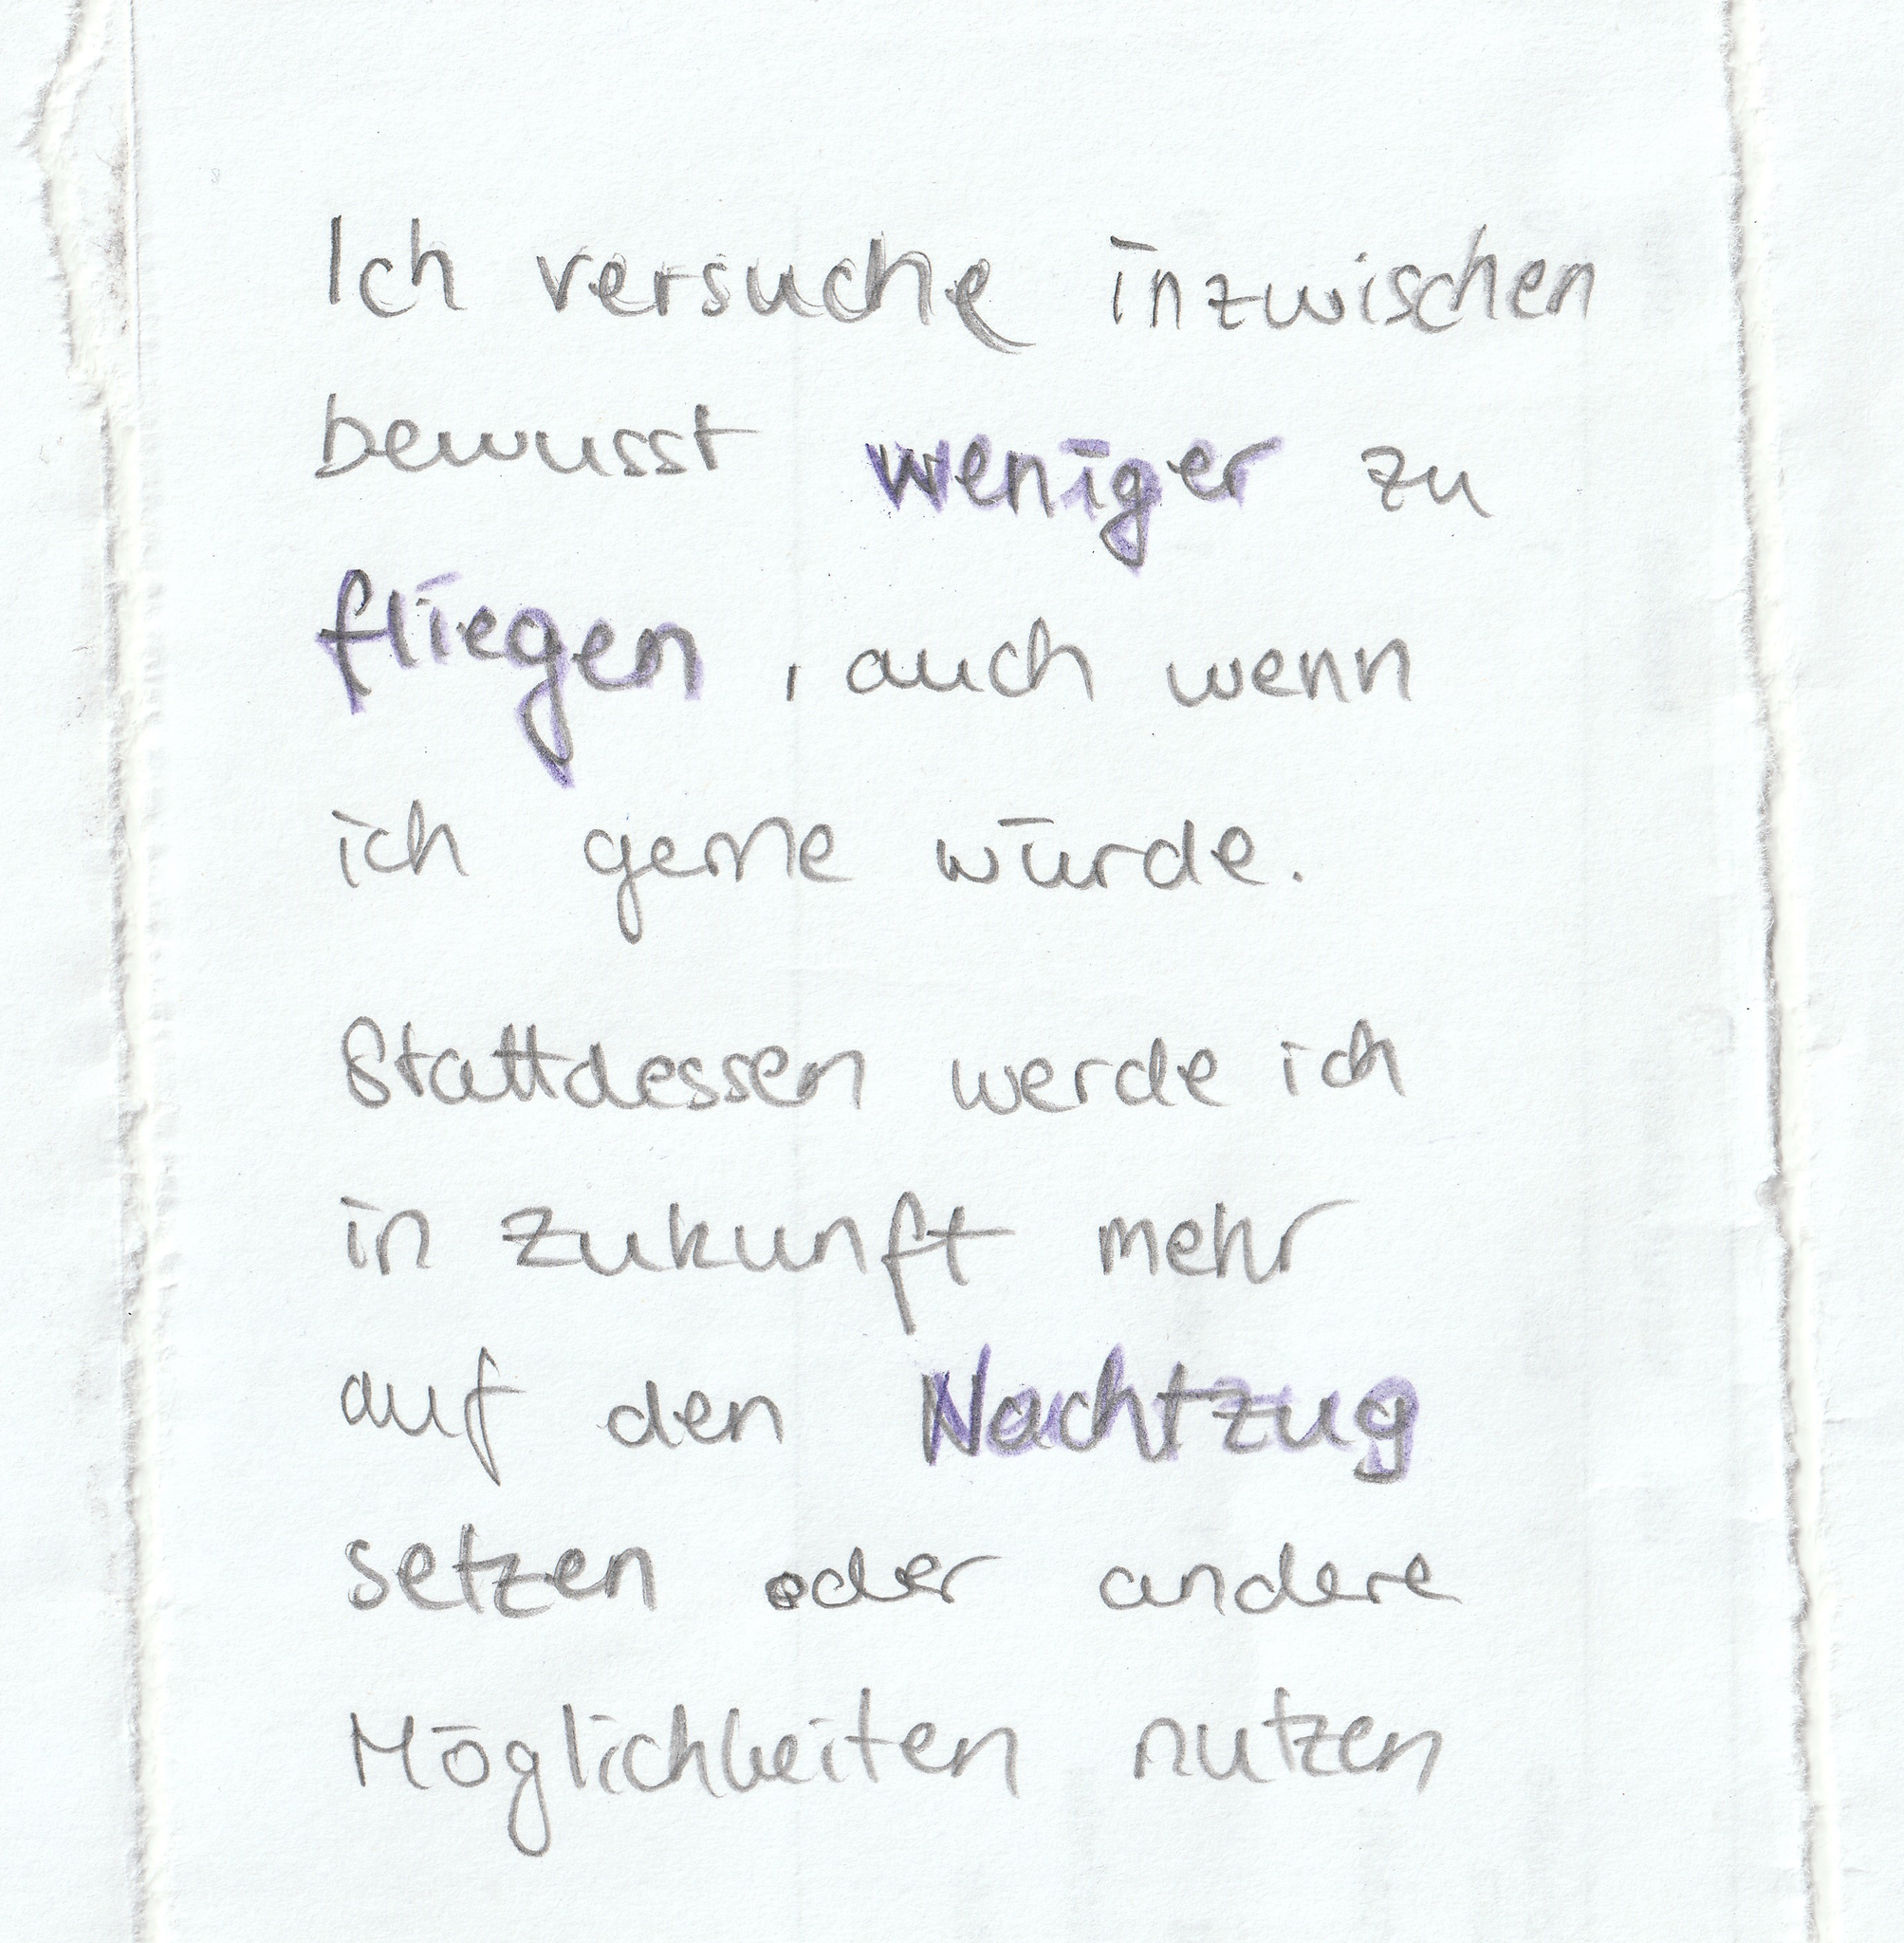 Ich versuche inzwischen
bewusst weniger zu
fliegen, auch wenn
ich gerne würde.
Stattdessen werde ich
in Zukunft mehr
auf den Nachtzug
setzen oder andere
Möglichkeiten nutzen